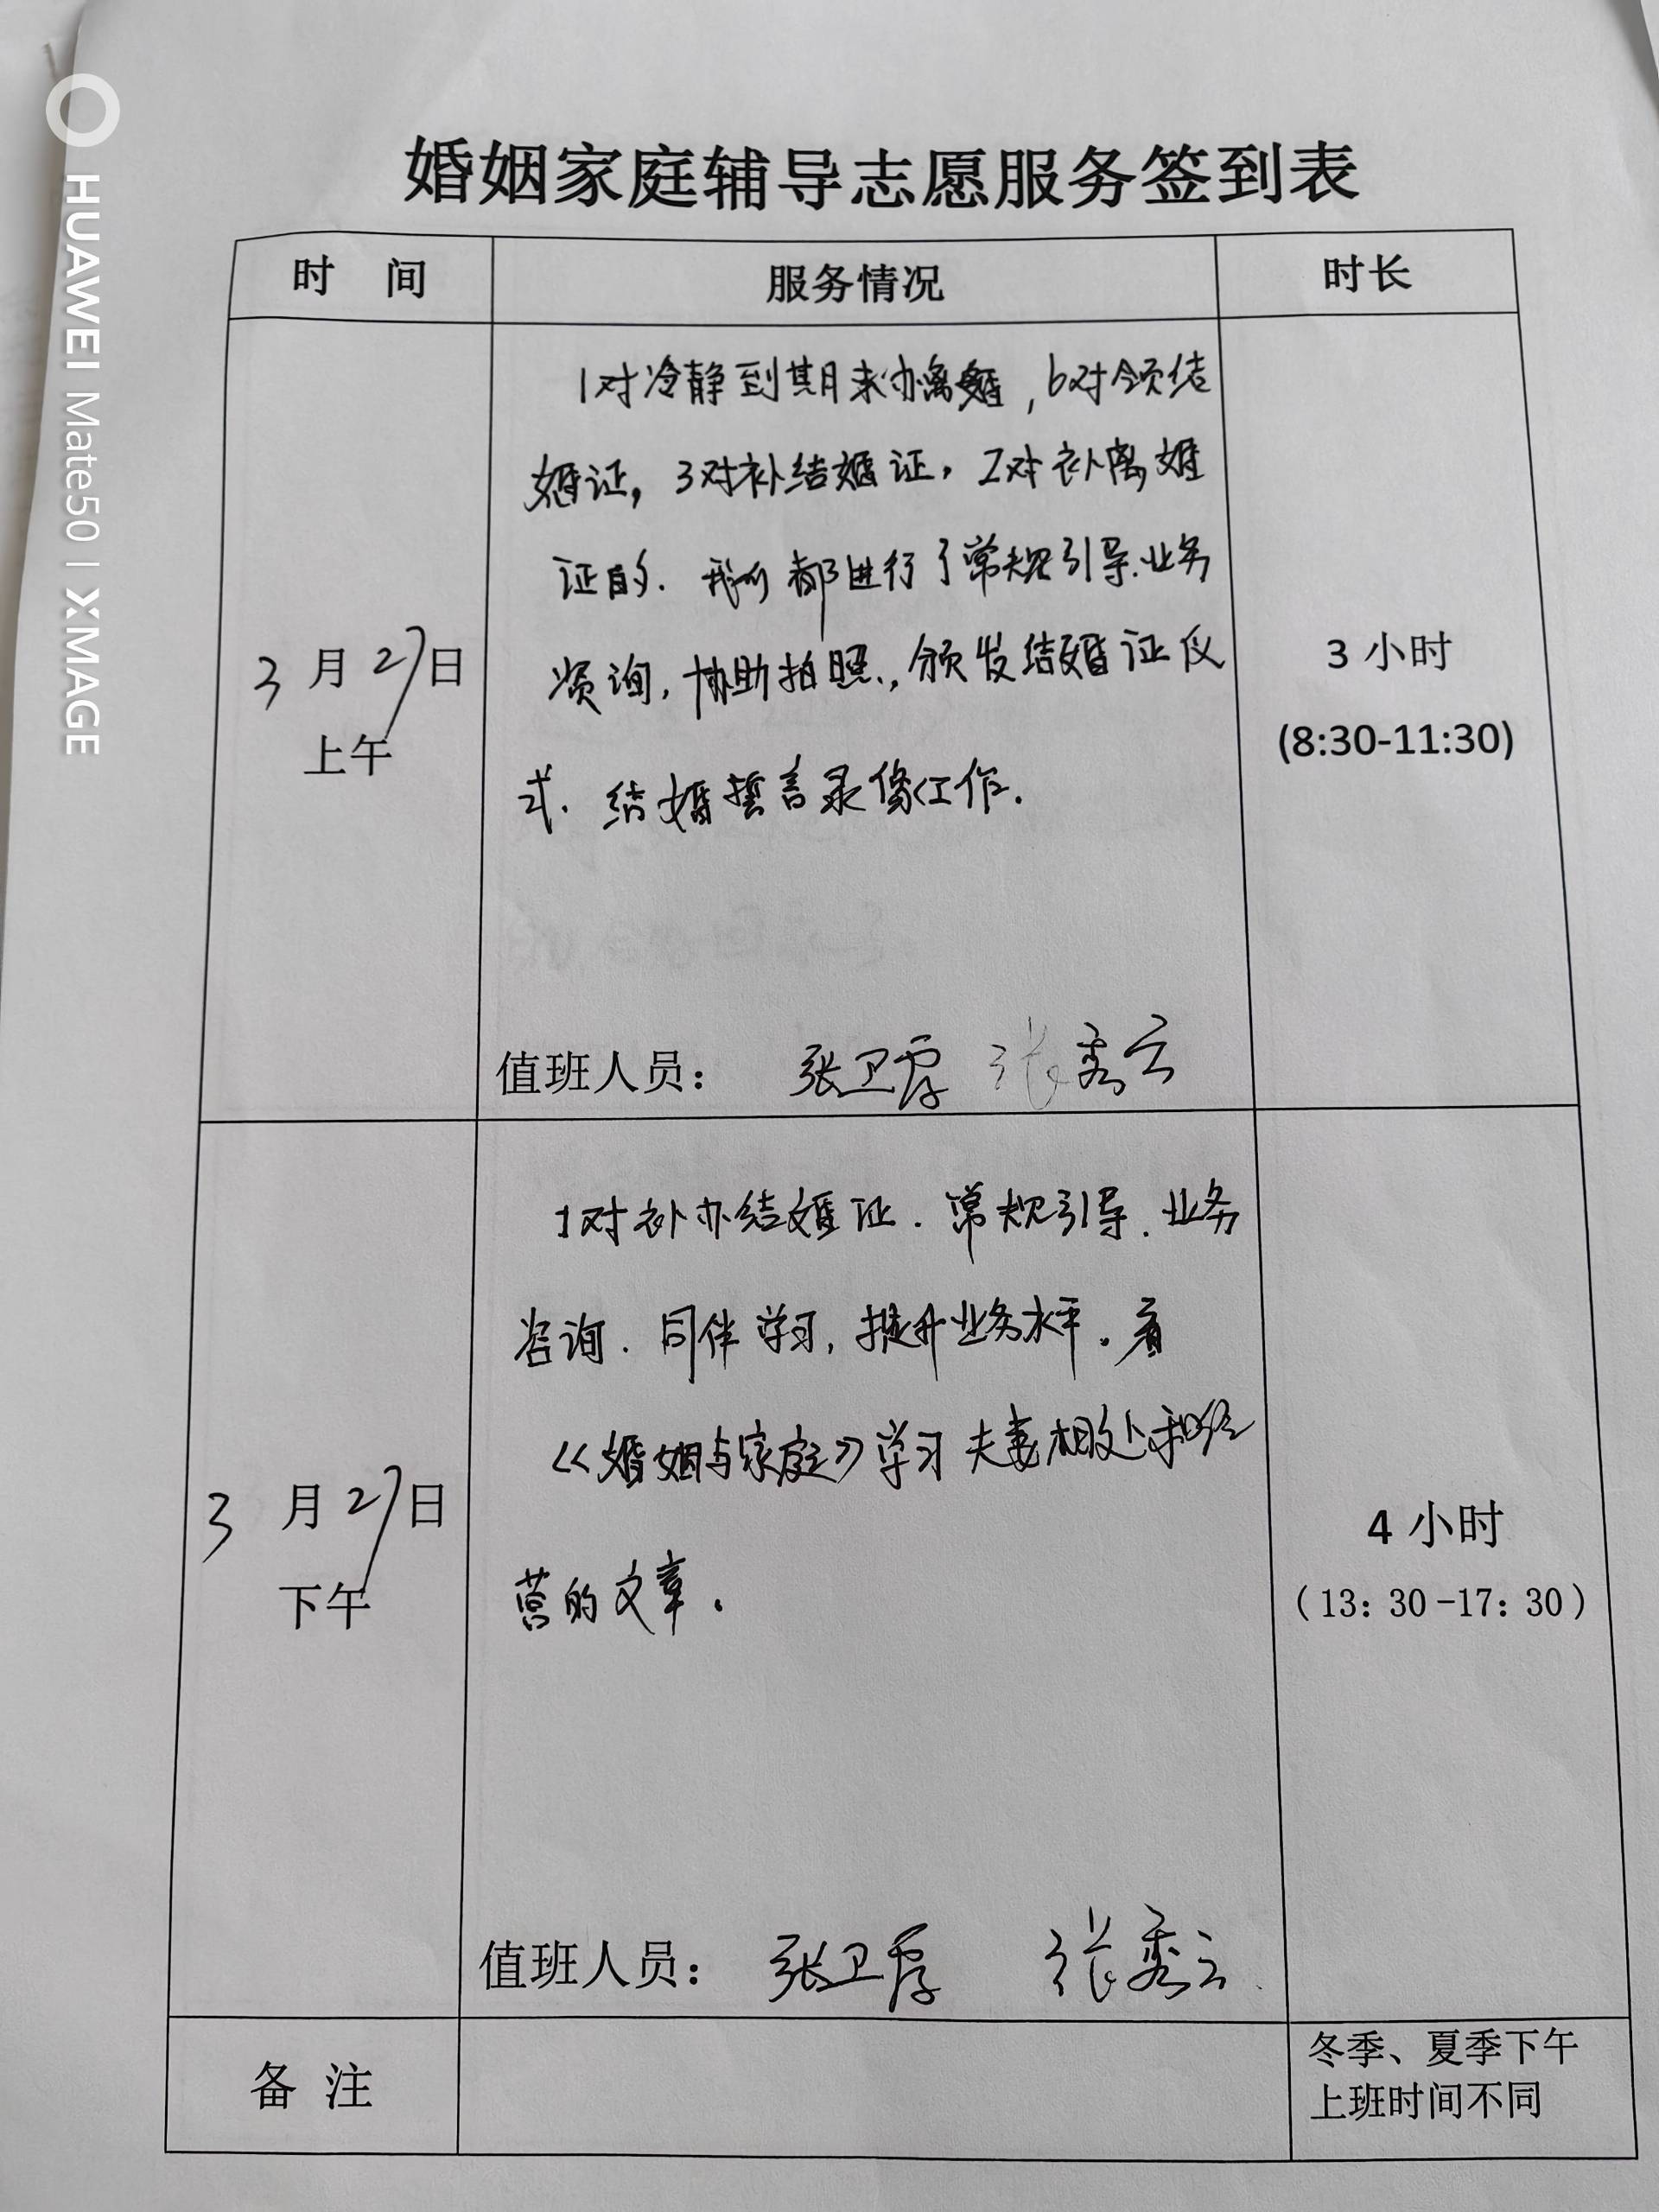 HUAWEI Mate50 | XMAGE
婚姻家庭辅导志愿服务签到表
时 间 服务情况 时长
1对冷静到其月来办离婚,6对领结
婚证,3对补结婚证,2对补离婚
证的.我们都进行了常规引导.业务
资询,协助拍照.,颁发结婚证仪
式.结婚誓言录像工作.
3月27日
上午
3 小时
(8:30-11:30)
值班人员: 张卫 张秀云
1对补办结婚证.常规引导.业务
咨询.同伴学习,提升业务水平。看
《婚姻与家庭》学习夫妻相处和经
营的文章。
3月27日
下午
4 小时
(13:30-17:30)
值班人员: 张卫 张秀云
备 注
冬季、夏季下午
上班时间不同